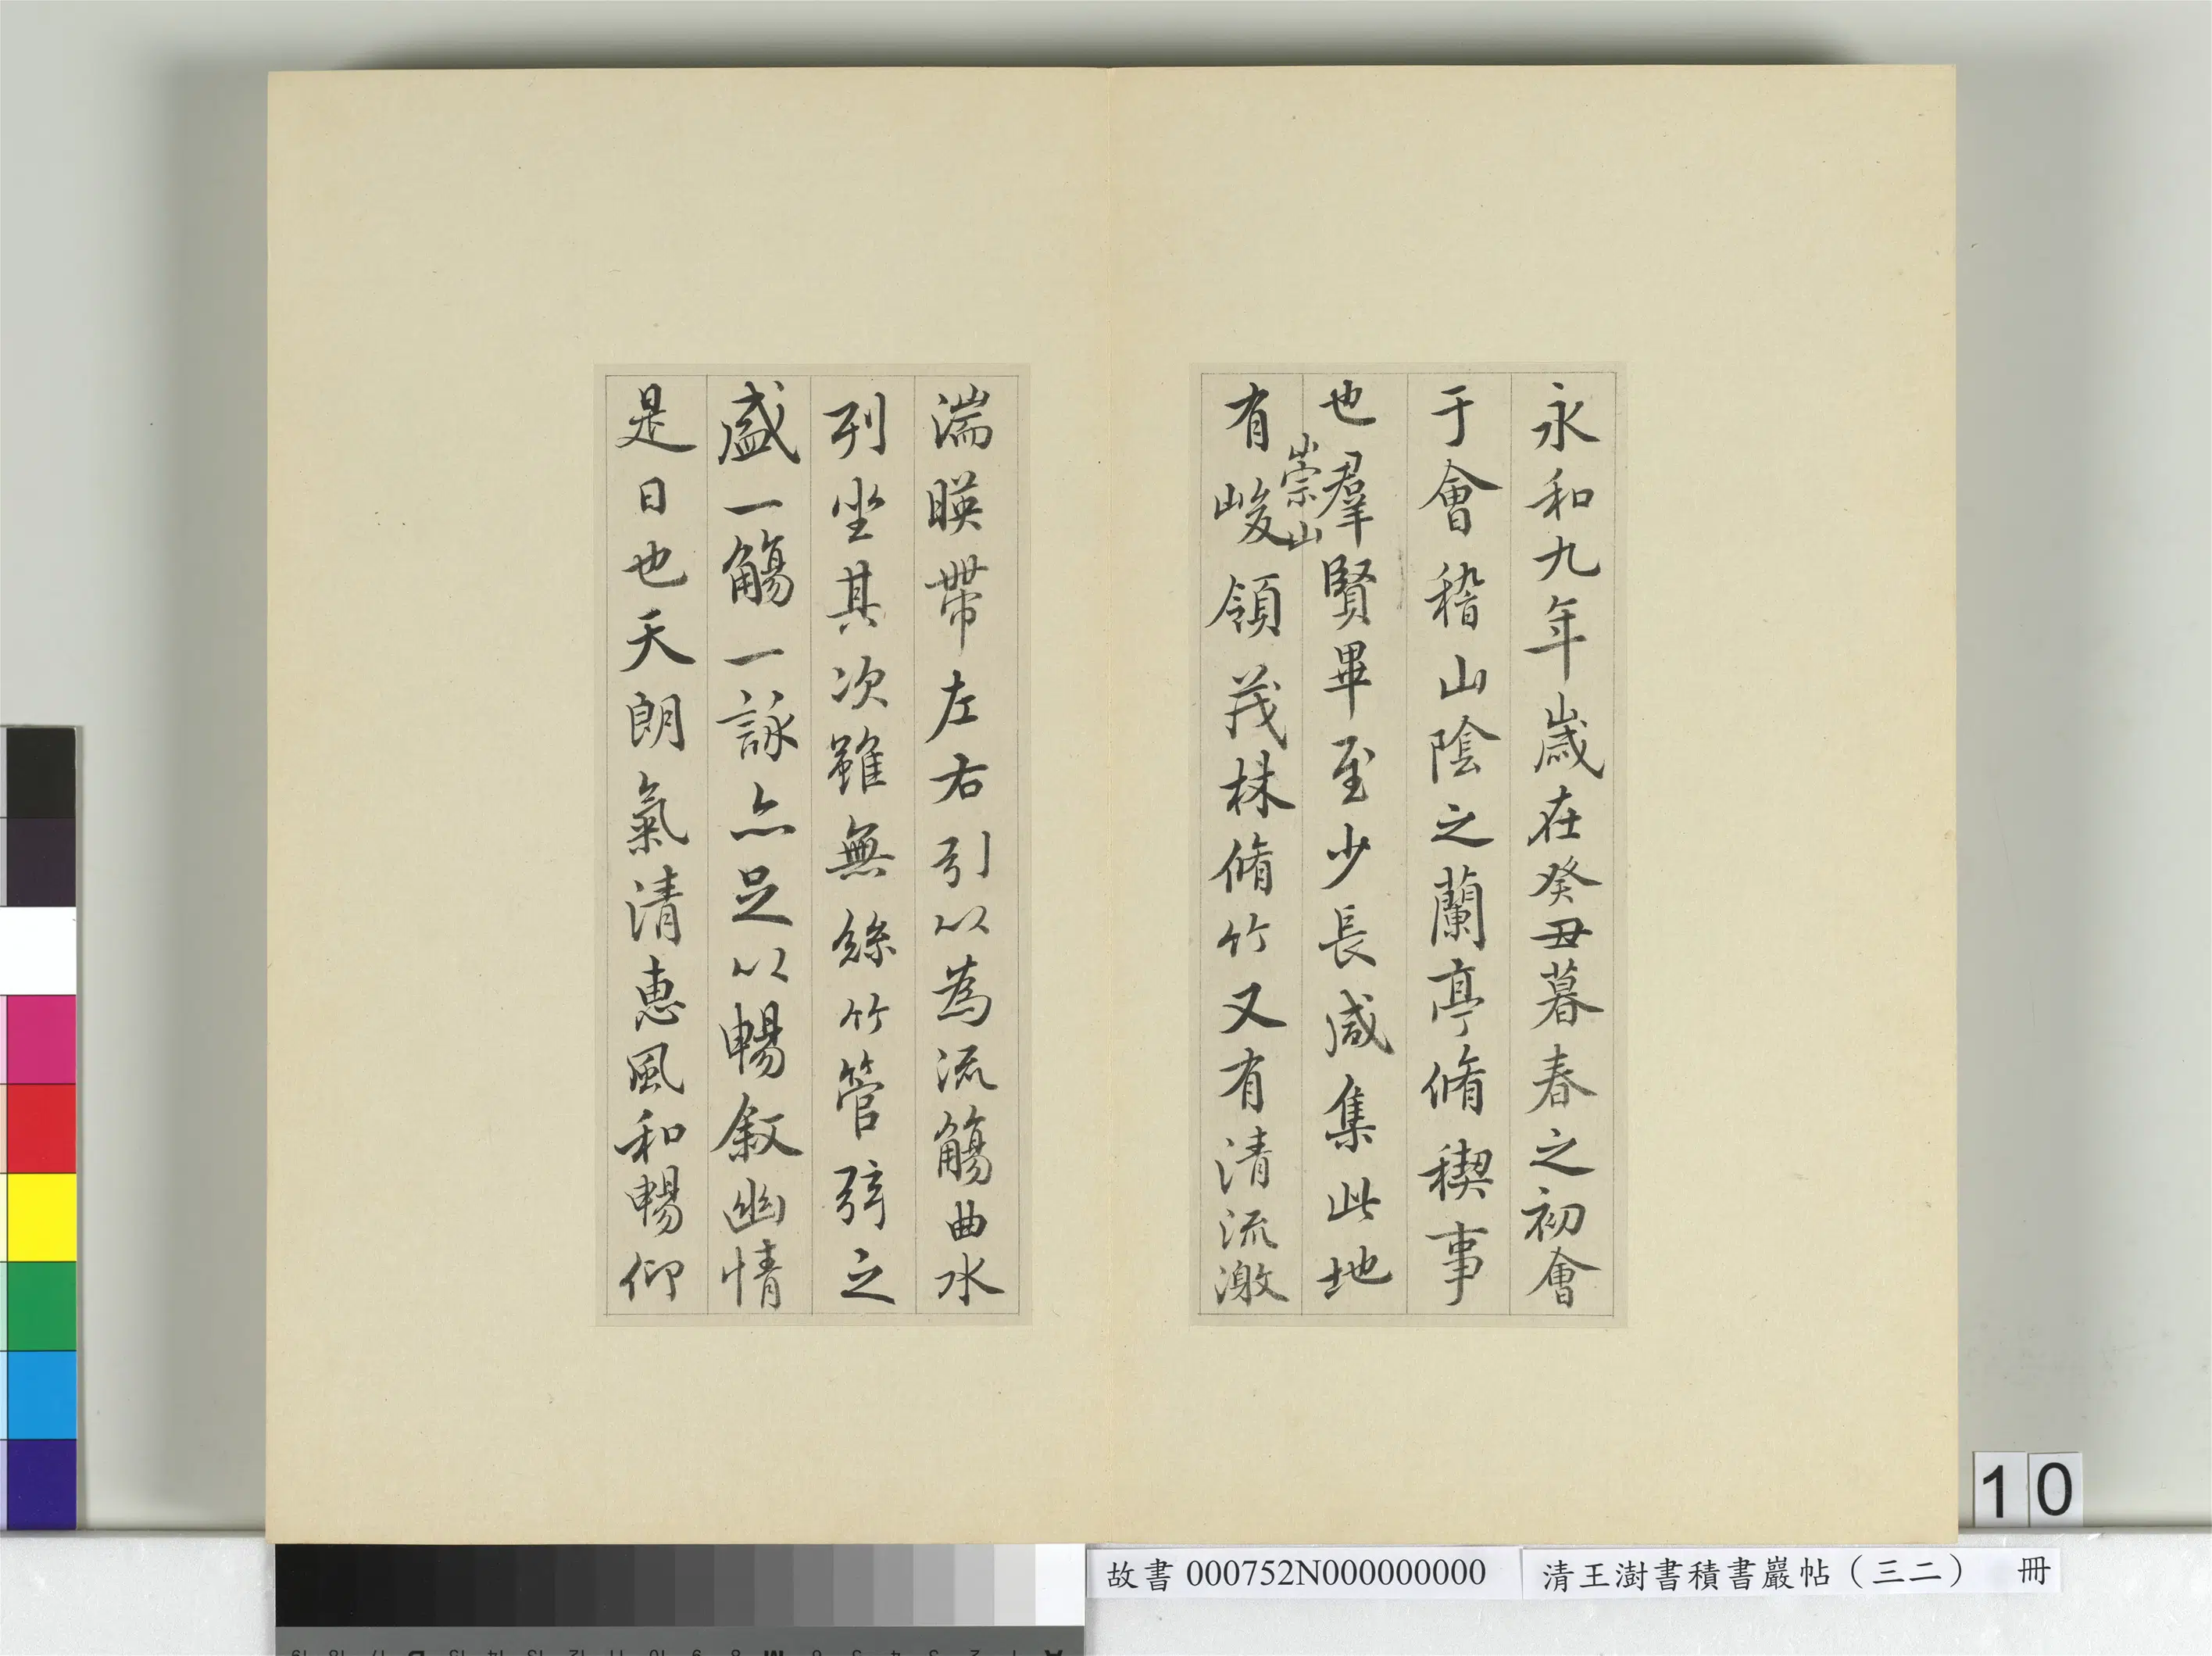 永和九年歲在癸丑暮春之初會
于會稽山陰之蘭亭脩稧事
也羣賢畢至少長咸集此地
有崇山峻領茂林脩竹又有清流激
湍暎帶左右引以為流觴曲水
列坐其次雖無絲竹管弦之
盛一觴一詠亦足以暢敘幽情
是日也天朗氣清惠風和暢仰
10
故書 000752N000000000
清王澍書積書巖帖（三二） 冊